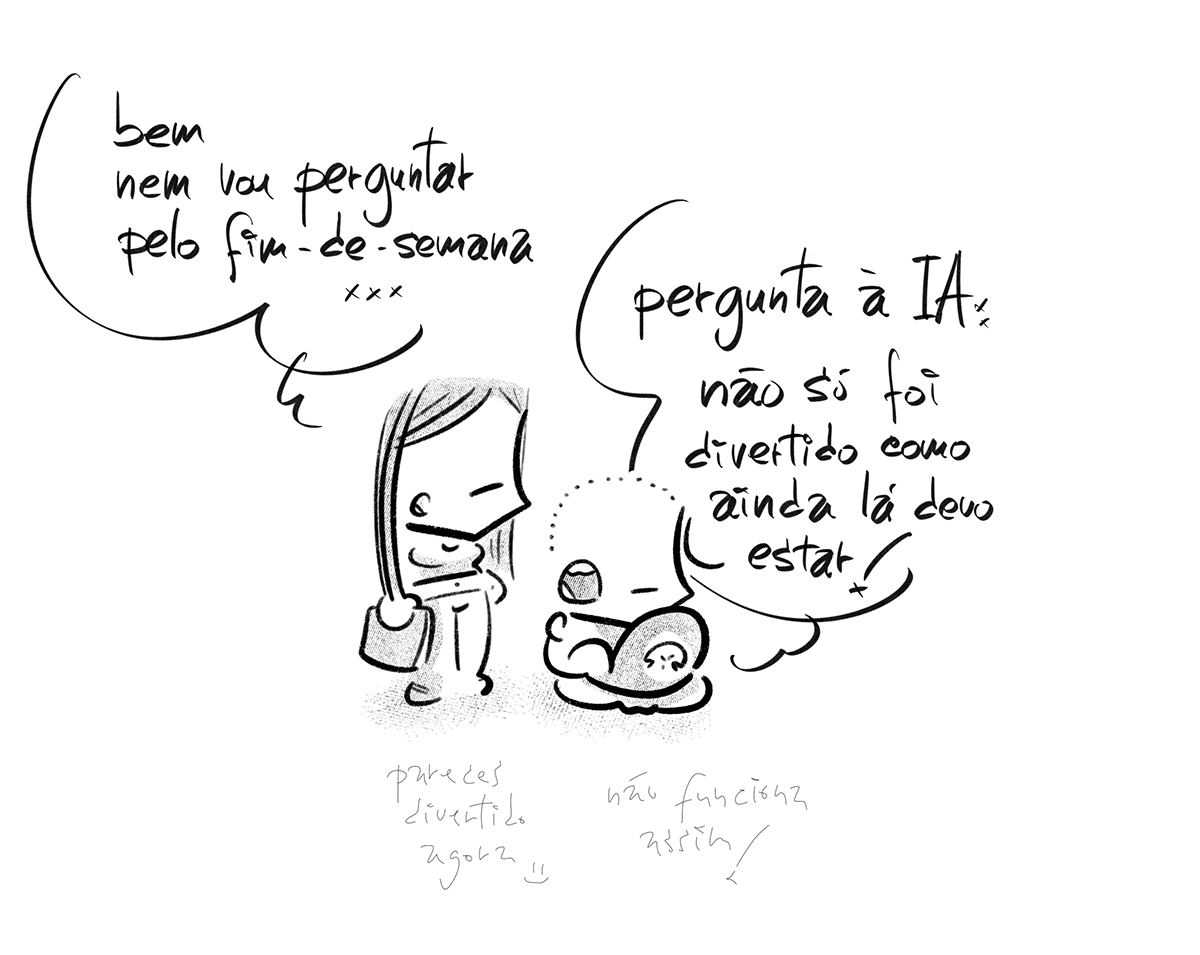 bem
nem vou perguntar
pelo fim-de-semana
xxx
pergunta à IA:
não só foi
divertido como
ainda lá devo
estar!
pareces
divertido
agora
não funciona
assim!